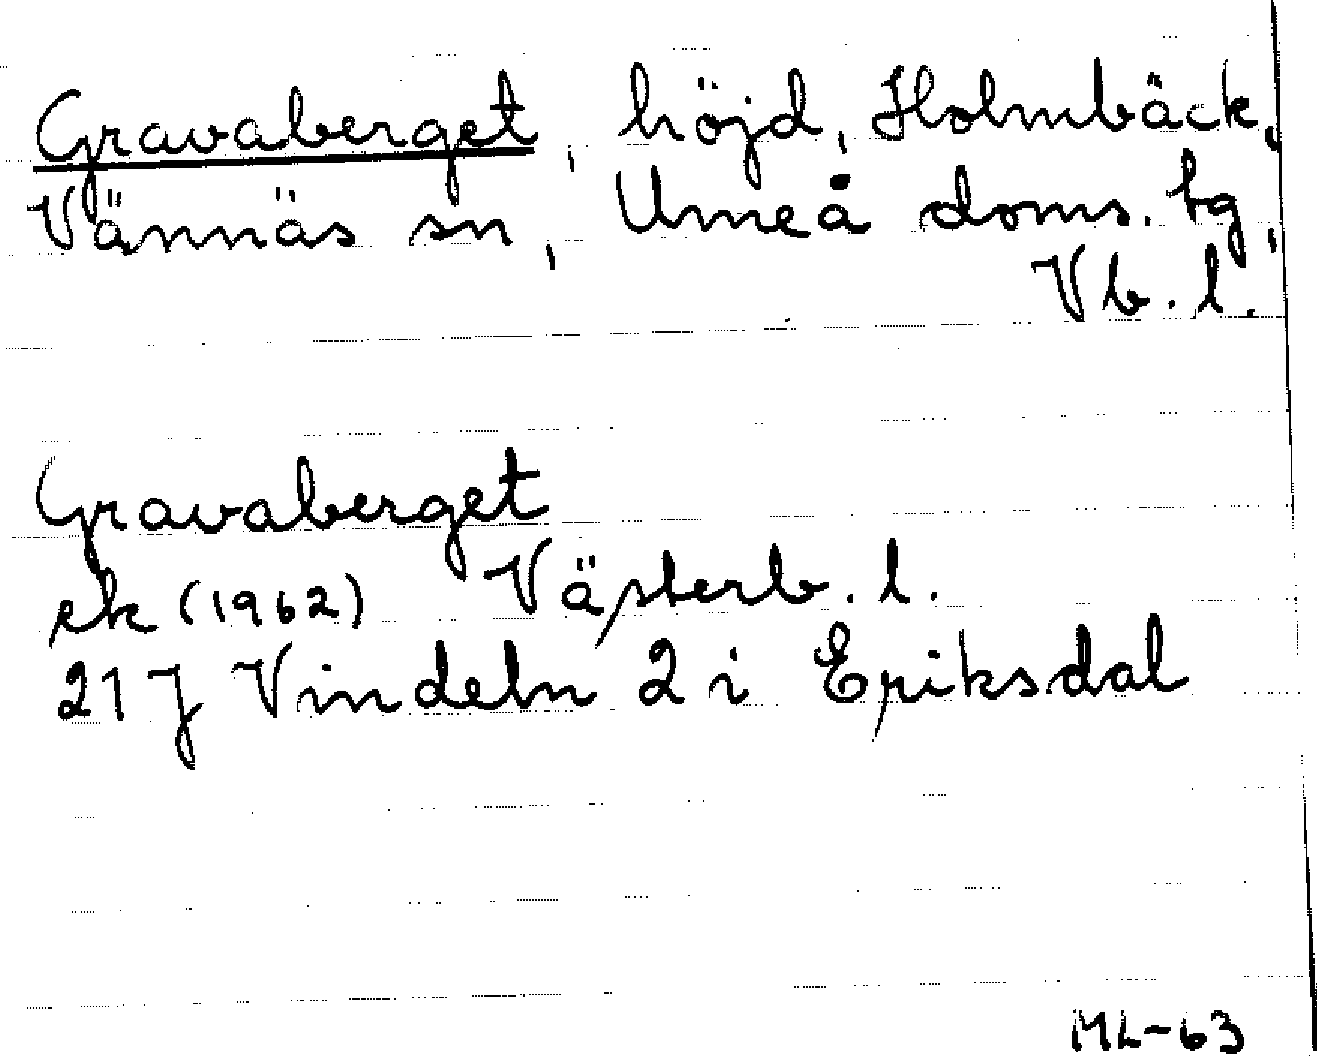 Gravaberget, höjd, Holmbäck,
Vännäs sn, Umeå doms. tg,
Vb. l.
Gravaberget
ek (1962) Västerb. l.
21 J Vindeln 2 i Eriksdal
ML-63